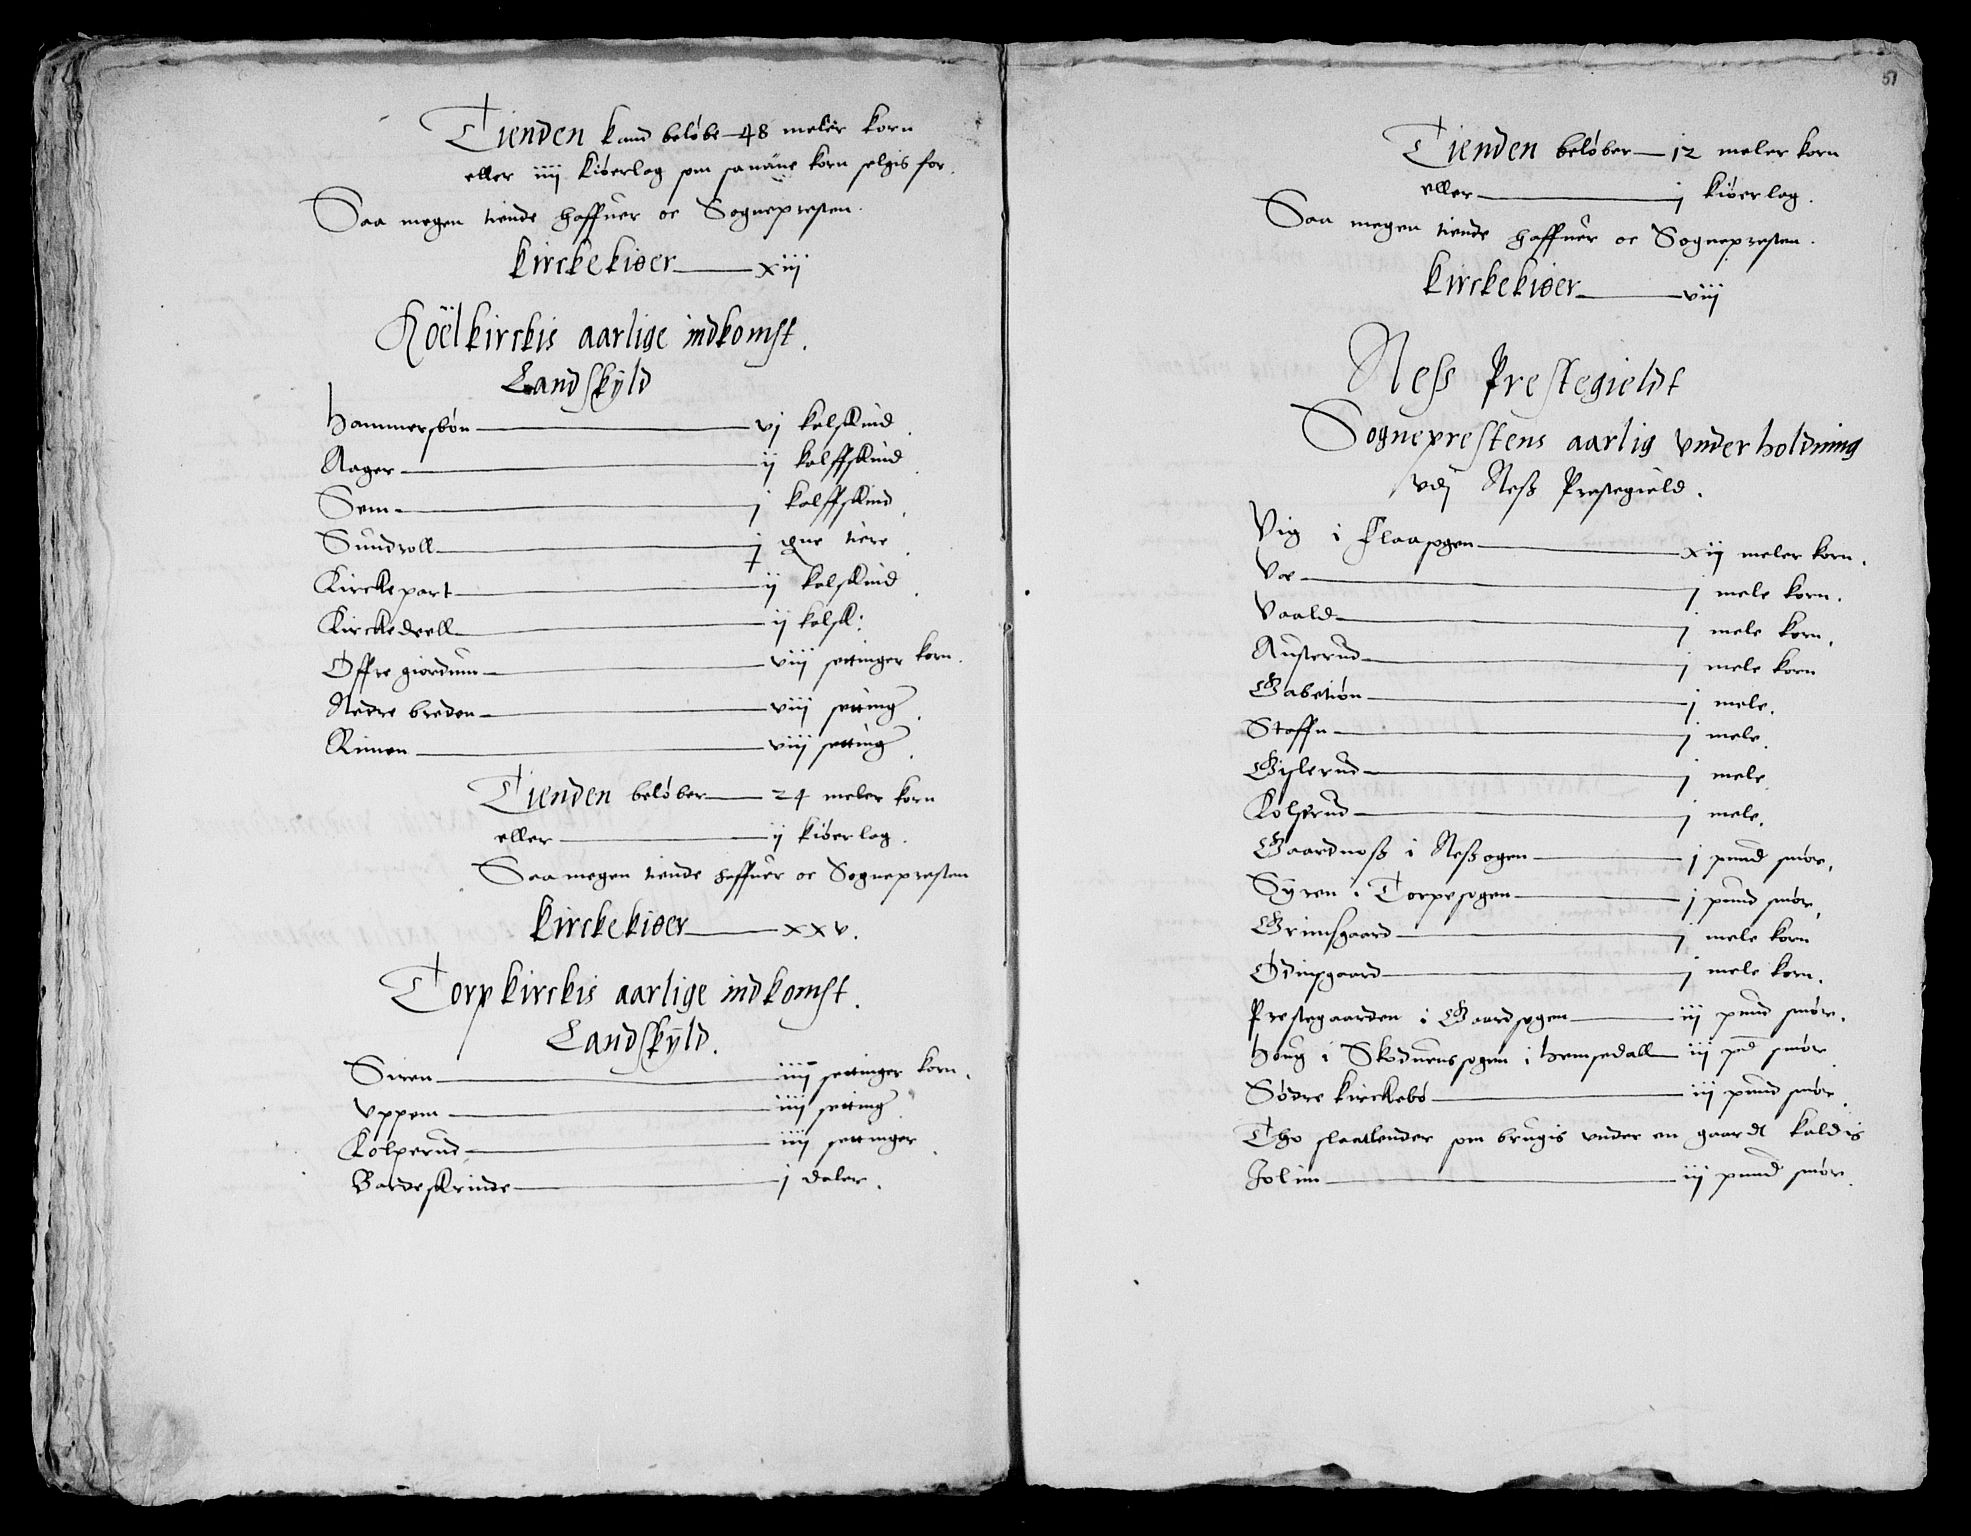 Tienden kand beløbe 48 meler korn
eller iiij kiøerlag som samme korn selgis for.
Saa megen tiende haffuer oc Sognepresten.
Kirckekiøer xiij
Hoëlkirckis aarlige indkomst.
Landskÿld
Hammersbøn vj kalskind.
Aager ij kalffskind.
Sem j kalffskind.
Sundroll j tiere.
Kirckepart ij kalskind.
Kirckedeell ij kalsk:
Offre giordum viij settinger korn.
Nedre breden viij setting.
Rimen viij setting.
Tienden beløber 24 meler korn
eller ij kiøerlag.
Saa megen tiende haffuer oc Sognepresten
Kirckekiøer xxv.
Torpkirckis aarlige indkomst.
Landskÿld.
Siren iiij settinger korn.
Vppem iiij setting.
Kolperud iiij settinger.
Bardeskrinde j daler.
51
Tienden beløber 12 meler korn
eller j kiøerlag.
Saa megen tiende haffuer oc Sognepresten.
Kirckekiøer viij
Ness Prestegieldt
Sogneprestens aarlig vnderholdning
vdj Ness Prestegield.
Vig i Flaasogen xij meler korn.
Voe j mele korn.
Vaald j mele korn.
Austerud j mele korn
Gabetiøn j mele.
Staffn j mele.
Gislerud j mele.
Kolsrud j mele.
Gaardness i Nessogen j pund smør.
Sÿren i Torpesogen j pund smør.
Grimsgaard j mele korn
Odinsgaard j mele korn.
Prestegaarden i Gaardsogen iij pund smør.
Houg i Skodueussogen i Hemsedall iij pnd smør.
Sødre kirckebø iij pund smør.
Tho slaatlender som brugis vnder en gaardt kaldis
Jolim iij pund smør.